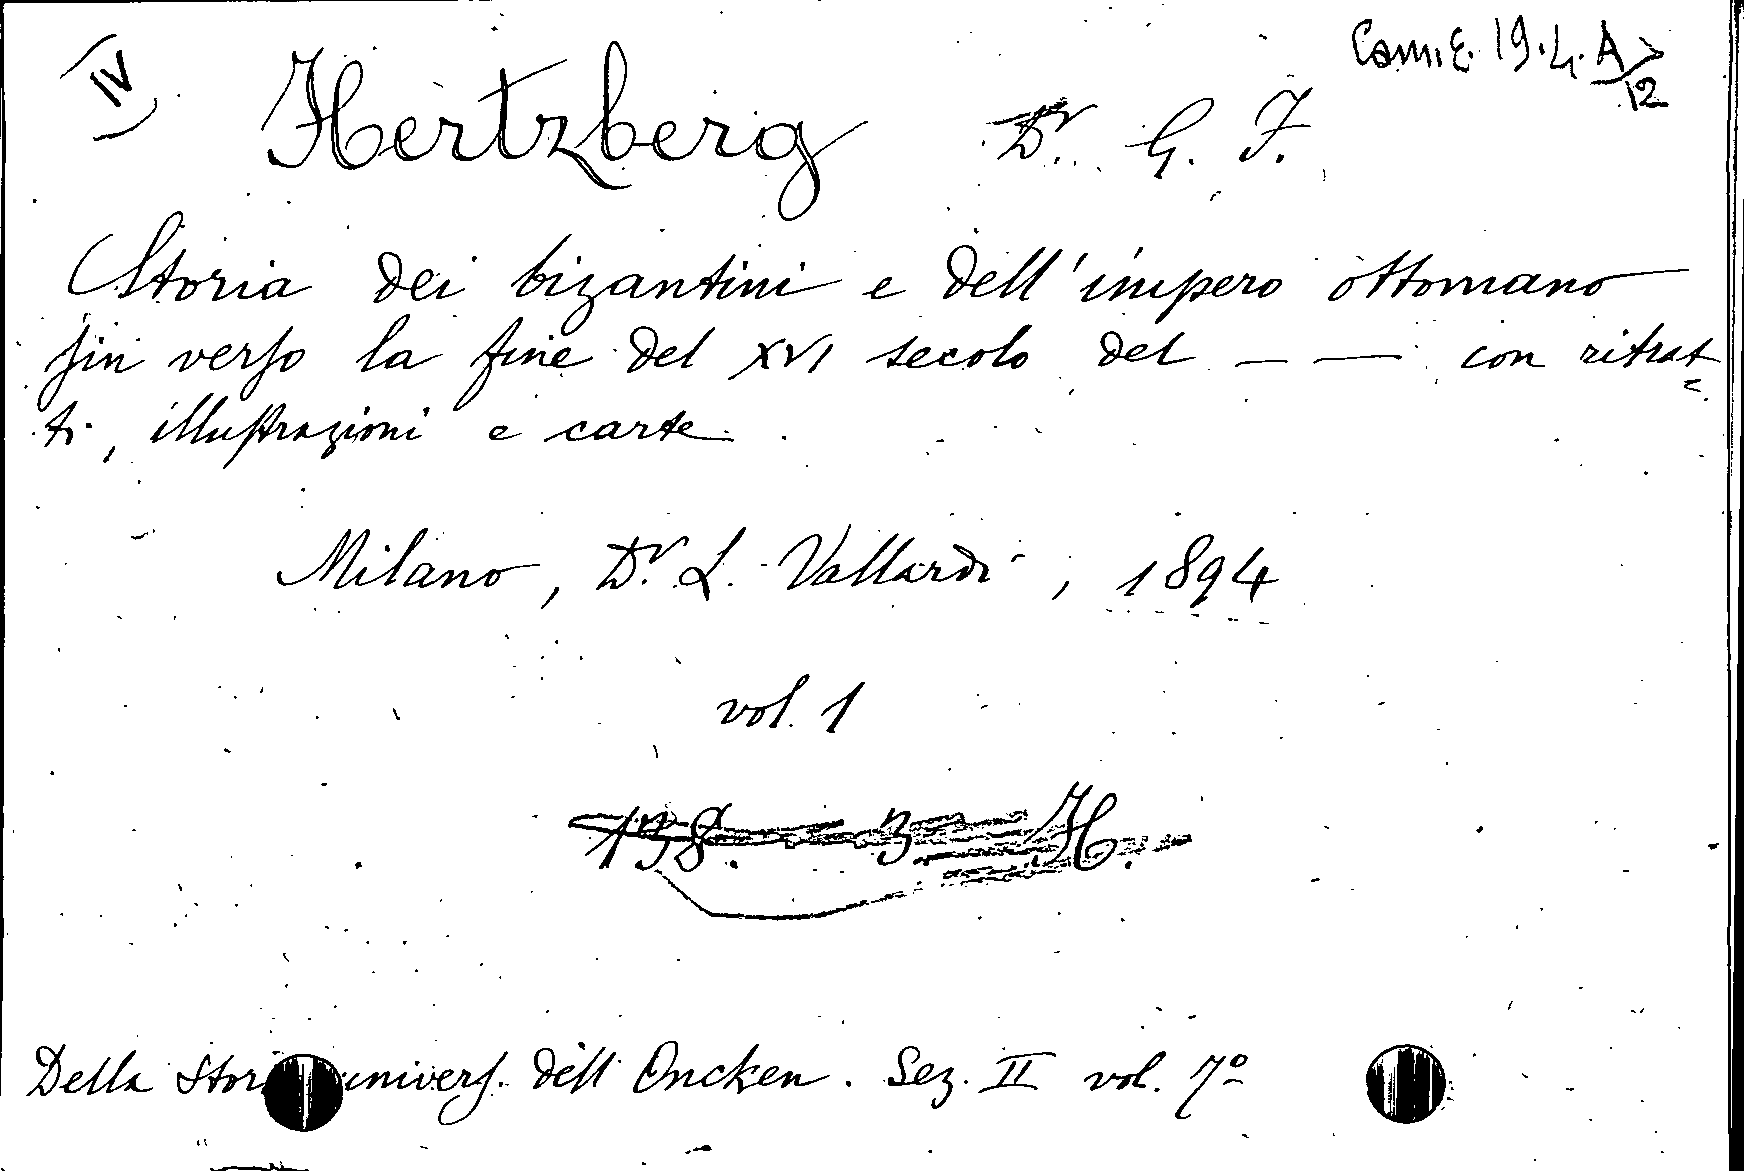 IV
Cam.E. 19.4. A>/12
Hertzberg Dr. G. F.
Storia dei bizantini e dell'impero ottomano
fin verso la fine del XVI secolo del — — con ritrat=
ti, illustrazioni e carte.
Milano, Dr. L. Vallardi, 1894
vol. 1
138. 3 H.
Della univers. dell' Oncken. Sez. II vol. 7º